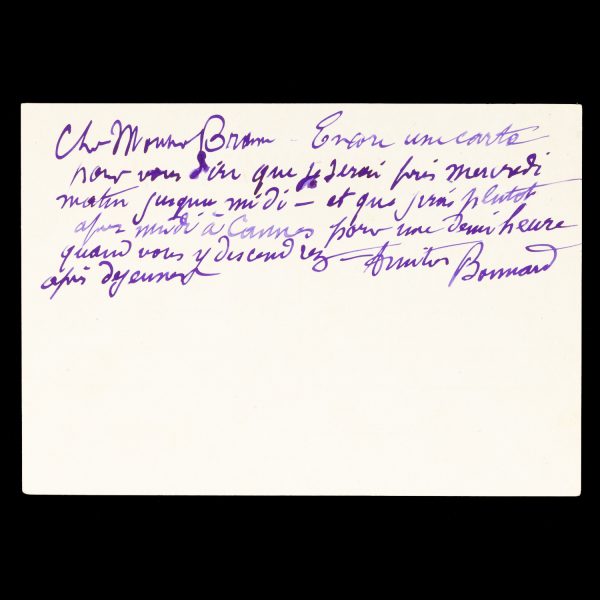 Cher Monsieur Braun – Encore une carte
pour vous dire que je serai pris mercredi
matin jusque midi – et que j'irai plutôt
apres midi à Cannes pour une demi heure
quand vous y descendrez – Amities
apis dejeuner Bonnard